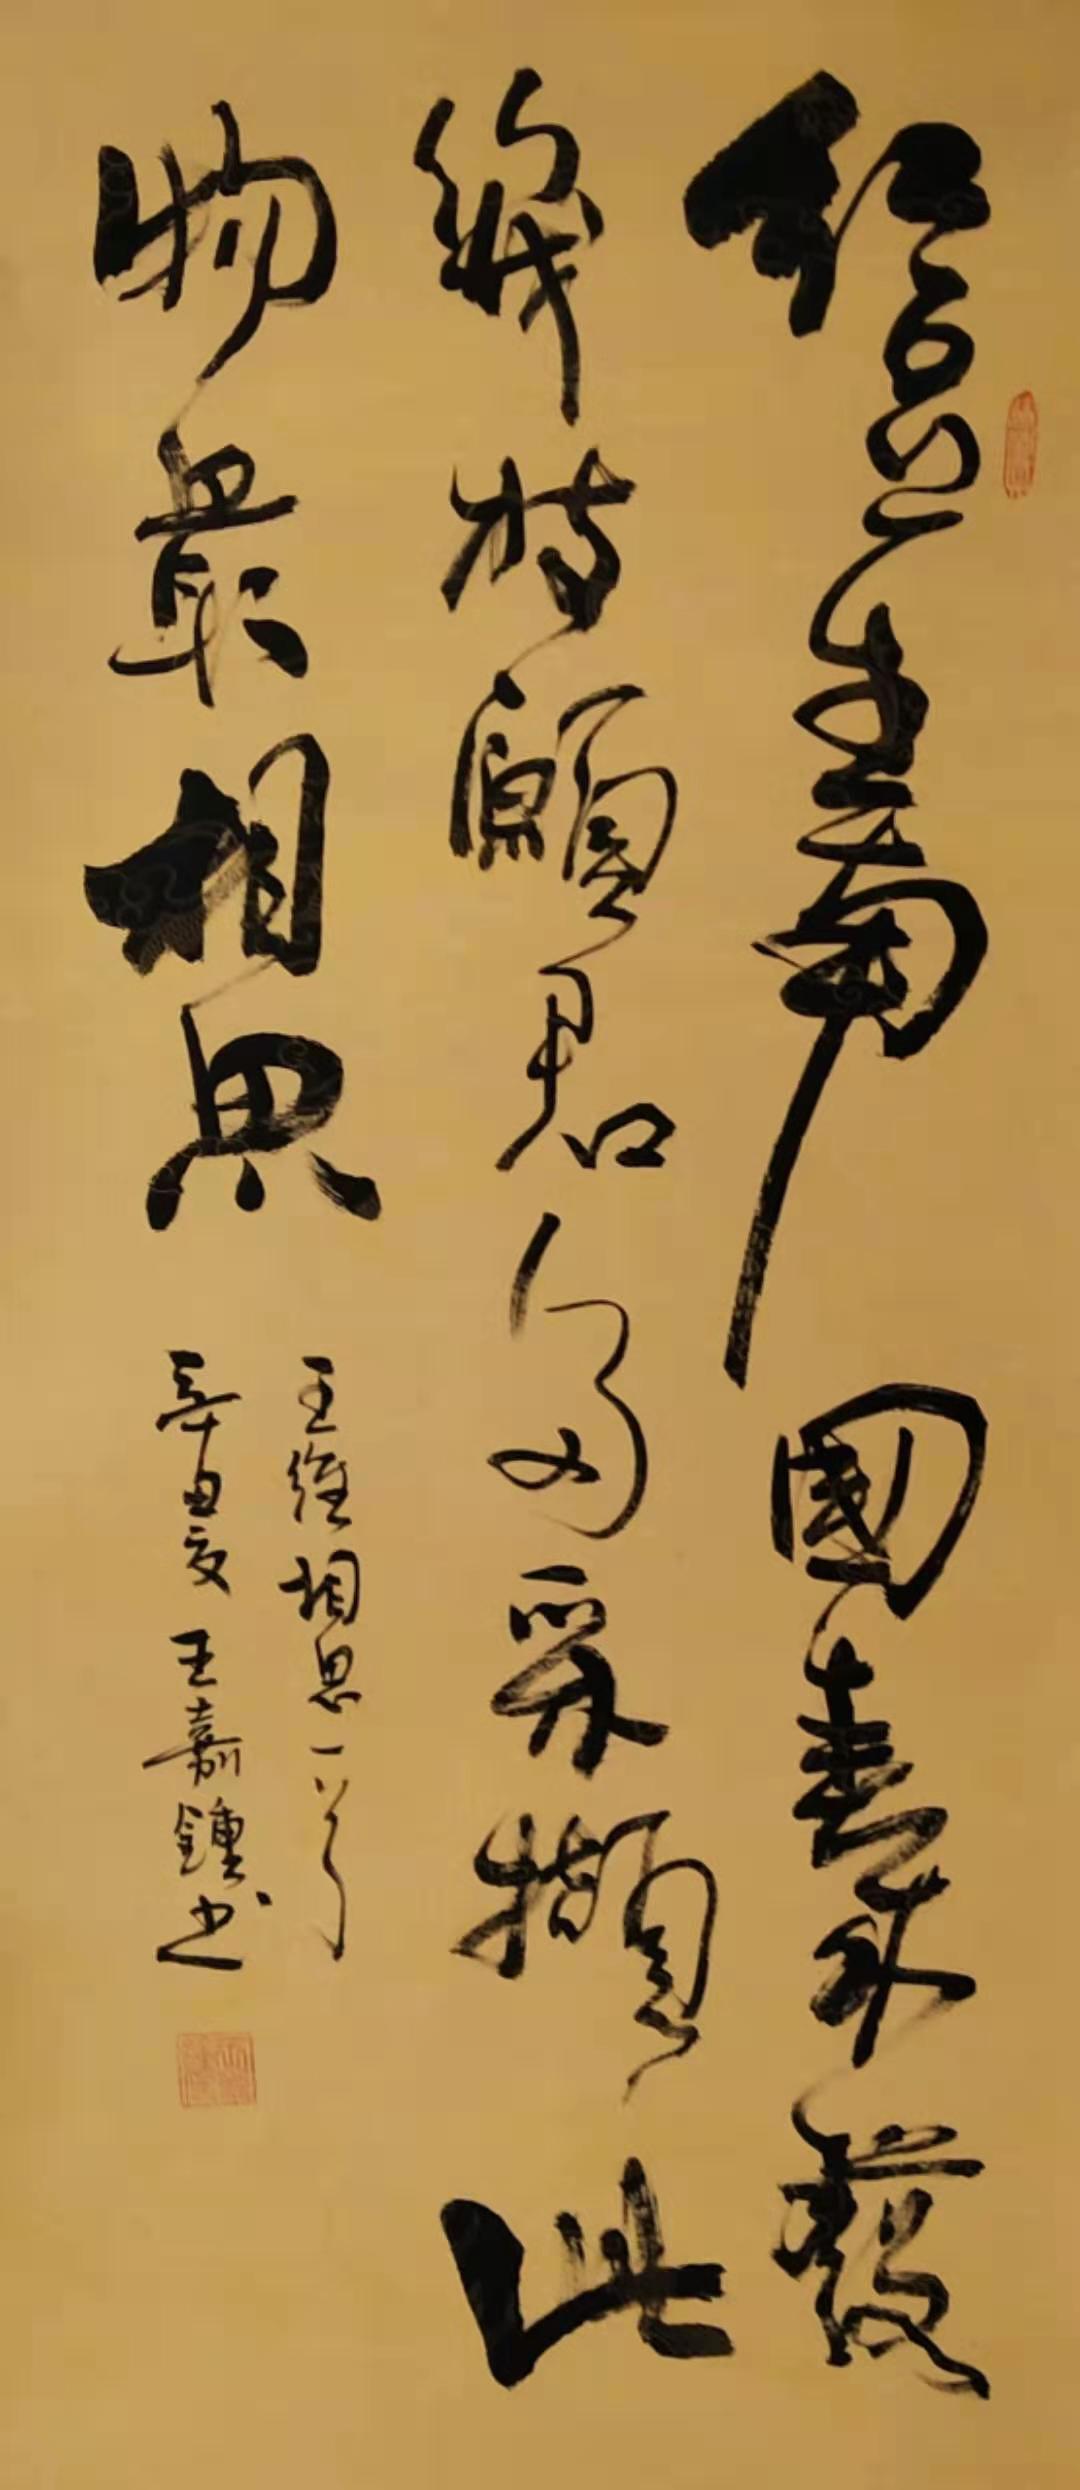 紅豆生南國春來發
幾枝願君多采擷此
物最相思
王維相思一首
辛丑夏王嘉鍾书